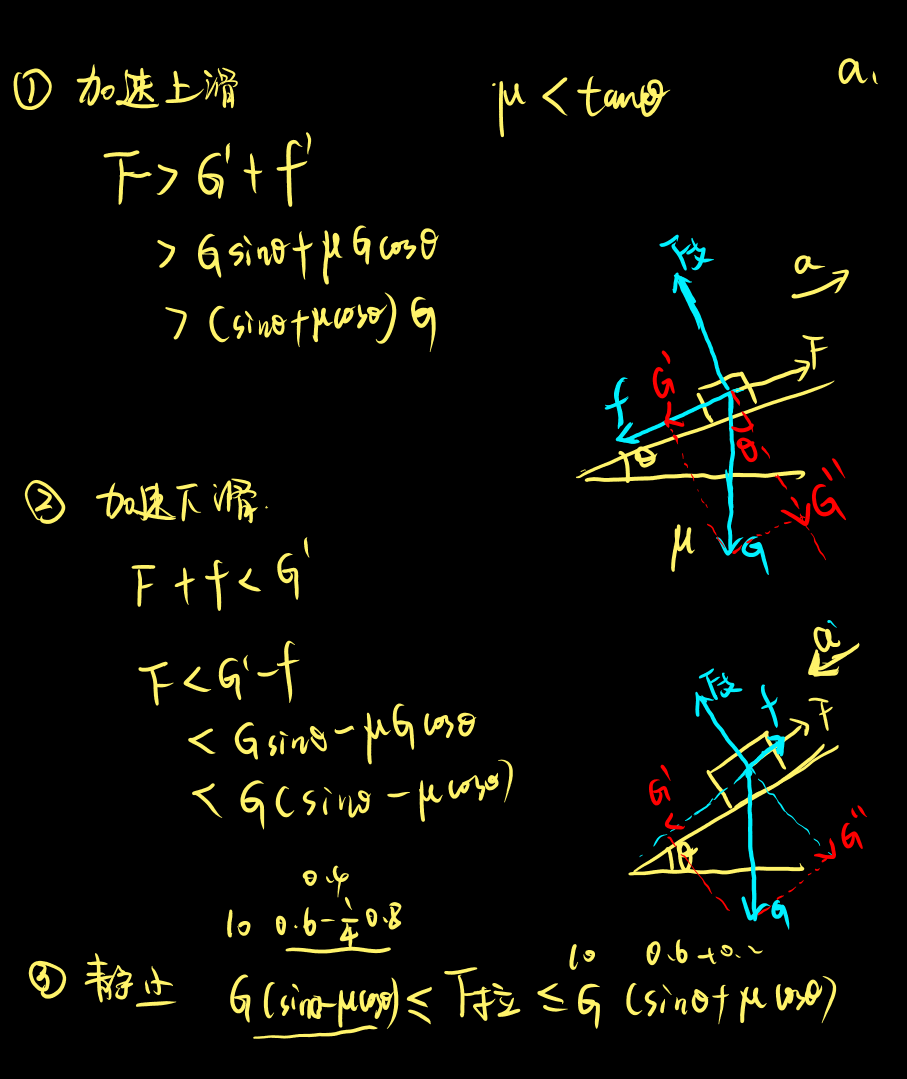 ① 加速上滑
μ < tanθ
a₁
F > G' + f'
> G sinθ + μ G cosθ
> (sinθ + μcosθ) G
F支
a
F
G'
f
θ
θ₁
G''
G
μ
② 加速下滑.
F + f < G'
F < G' - f
< G sinθ - μ G cosθ
< G (sinθ - μ cosθ)
a
F支
f
F
G'
G''
θ
G
0.4
10 0.6 - 1/4 0.8
10 0.6 + 0.2
③ 静止 G (sinθ - μcosθ) ≤ F拉 ≤ G (sinθ + μ cosθ)